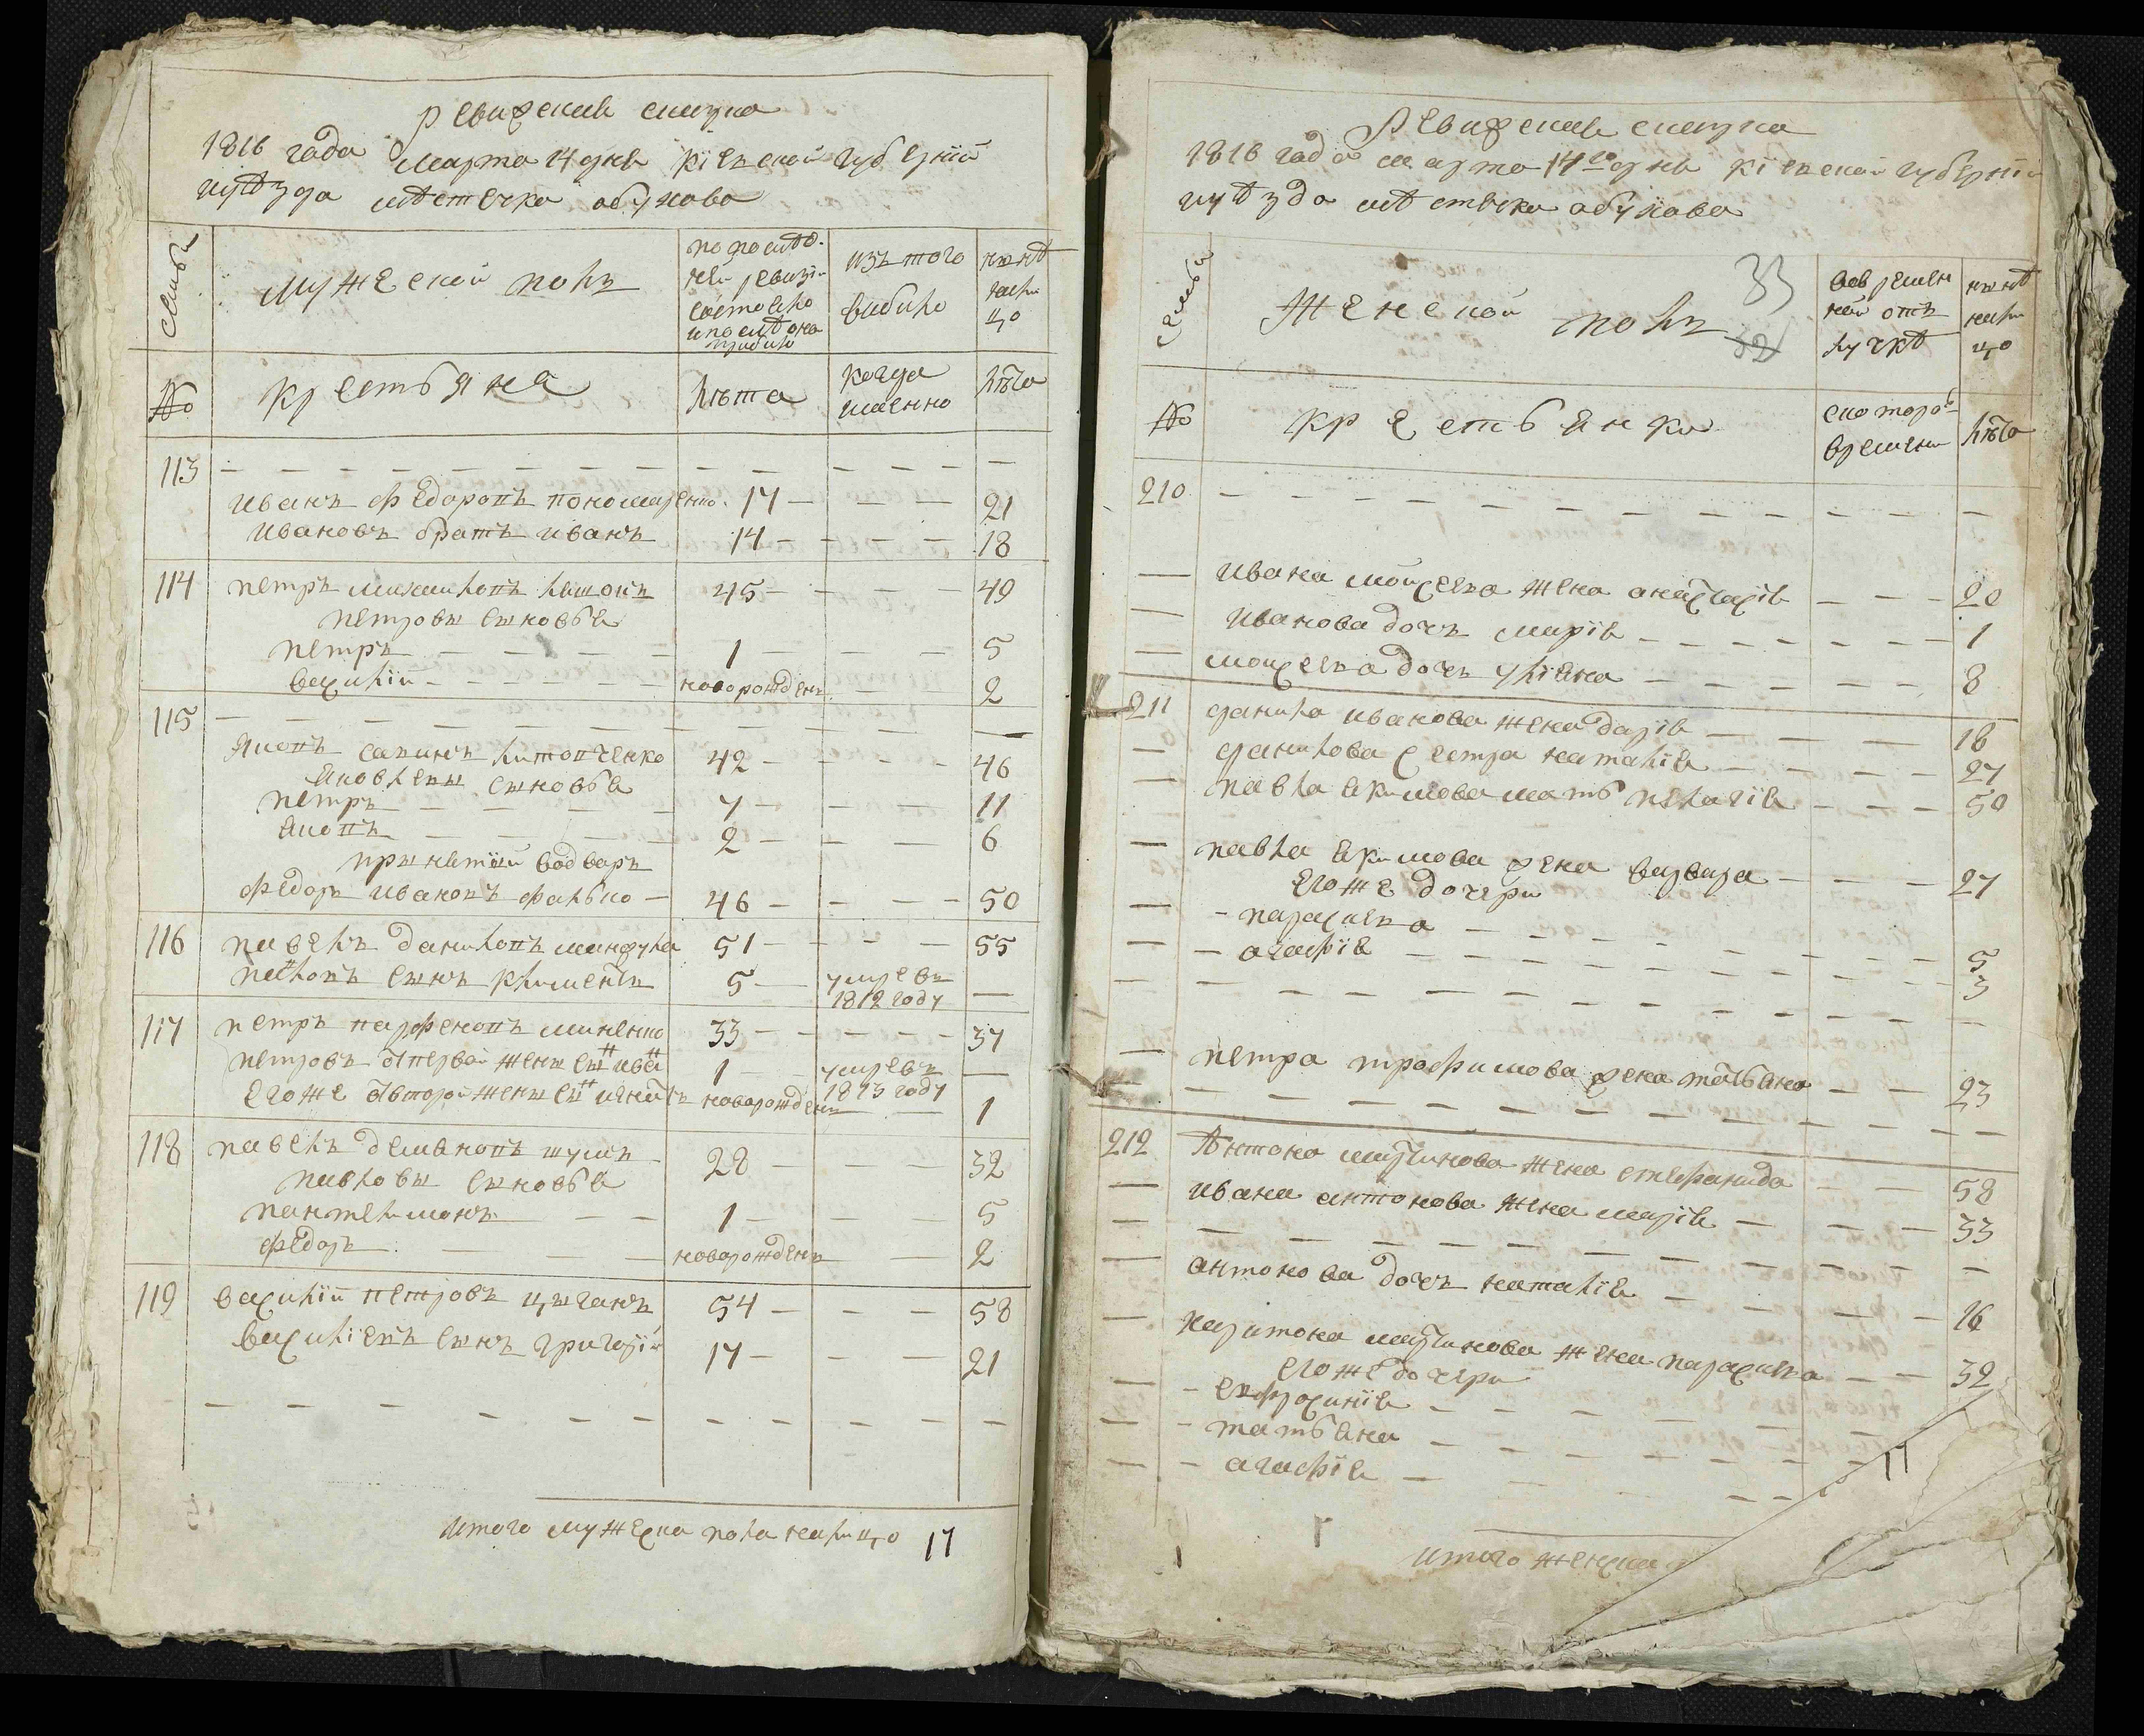 ревизская сказка
1816 года марта 14 дня кіевской губерніи
и уѣзда мѣстечка обухова
семьи
мужеской полъ
по последней ревизіи состояло и после оной прибыло
изъ того выбыло
нынѣ налицо
№
крестьяне
лѣта
когда именно
лѣта
113 — — — — — — — —
иванъ федоровъ пономаренко 17 — — — 21
ивановъ братъ иванъ 14 — — — 18
114 петръ михайловъ 45 — — — 49
петровы сыновья
петръ — — — 1 — — 5
василій — — — новорожденъ — 2
115 — — — — — — — —
яковъ савинъ литовченко 42 — — — 46
яковлевы сыновья
петръ — — — 7 — — 11
яковъ — — — 2 — — 6
принетый водворъ
федоръ ивановъ фалько — 46 — — — 50
116 павелъ даниловъ 51 — — — 55
павловъ сынъ климентъ 5 — умре въ 1812 году —
117 петръ парфеновъ миненко 33 — — — 37
петровъ отпервой жены сынъ 1 — умре въ 1813 году —
егоже отвторой жены сынъ игнатъ новорожденъ — 1
118 павелъ демяновъ шумъ 28 — — — 32
павловы сыновья
пантелимонъ — — 1 — — 5
федоръ — — — новорожденъ — 2
119 василій петровъ цыганъ 54 — — — 58
василіевъ сынъ григорій 17 — — — 21
— — — — — — — —
итого мужеска пола налицо 17
ревизская сказка
1816 года марта 14го дня кіевской губерніи
и уѣзда мѣстечка обухова
семьи
женской полъ
33
32
вовременной отлучкѣ
нынѣ налицо
№
крестьянки
скотораго времени
лѣта
210 — — — — — — — —
— ивана мойсева жена анастасія — — — 20
— иванова дочъ марія — — — 1
— мойсева дочъ уліяна — — — 8
211 данила иванова жена дарія — — — 18
— данилова сестра наталія — — — 27
— павла якимова мать пелагія — — — 50
— павла якимова жена варвара — — — 27
егоже дочери
— — параскева — — — 5
— — агафія — — — 3
— — — — — — — —
— петра трофимова жена татьяна — — 23
— — — — — — — —
212 антона мартинова жена стефанида — — 58
— ивана антонова жена марія — — — 33
— — — — — — — —
— антонова дочъ наталія — — — 16
— харитона мартинова жена параскева — — 32
егоже дочери
— — евфросинія — — —
— — татьяна — — —
— — агафія — — —
17
итого женска